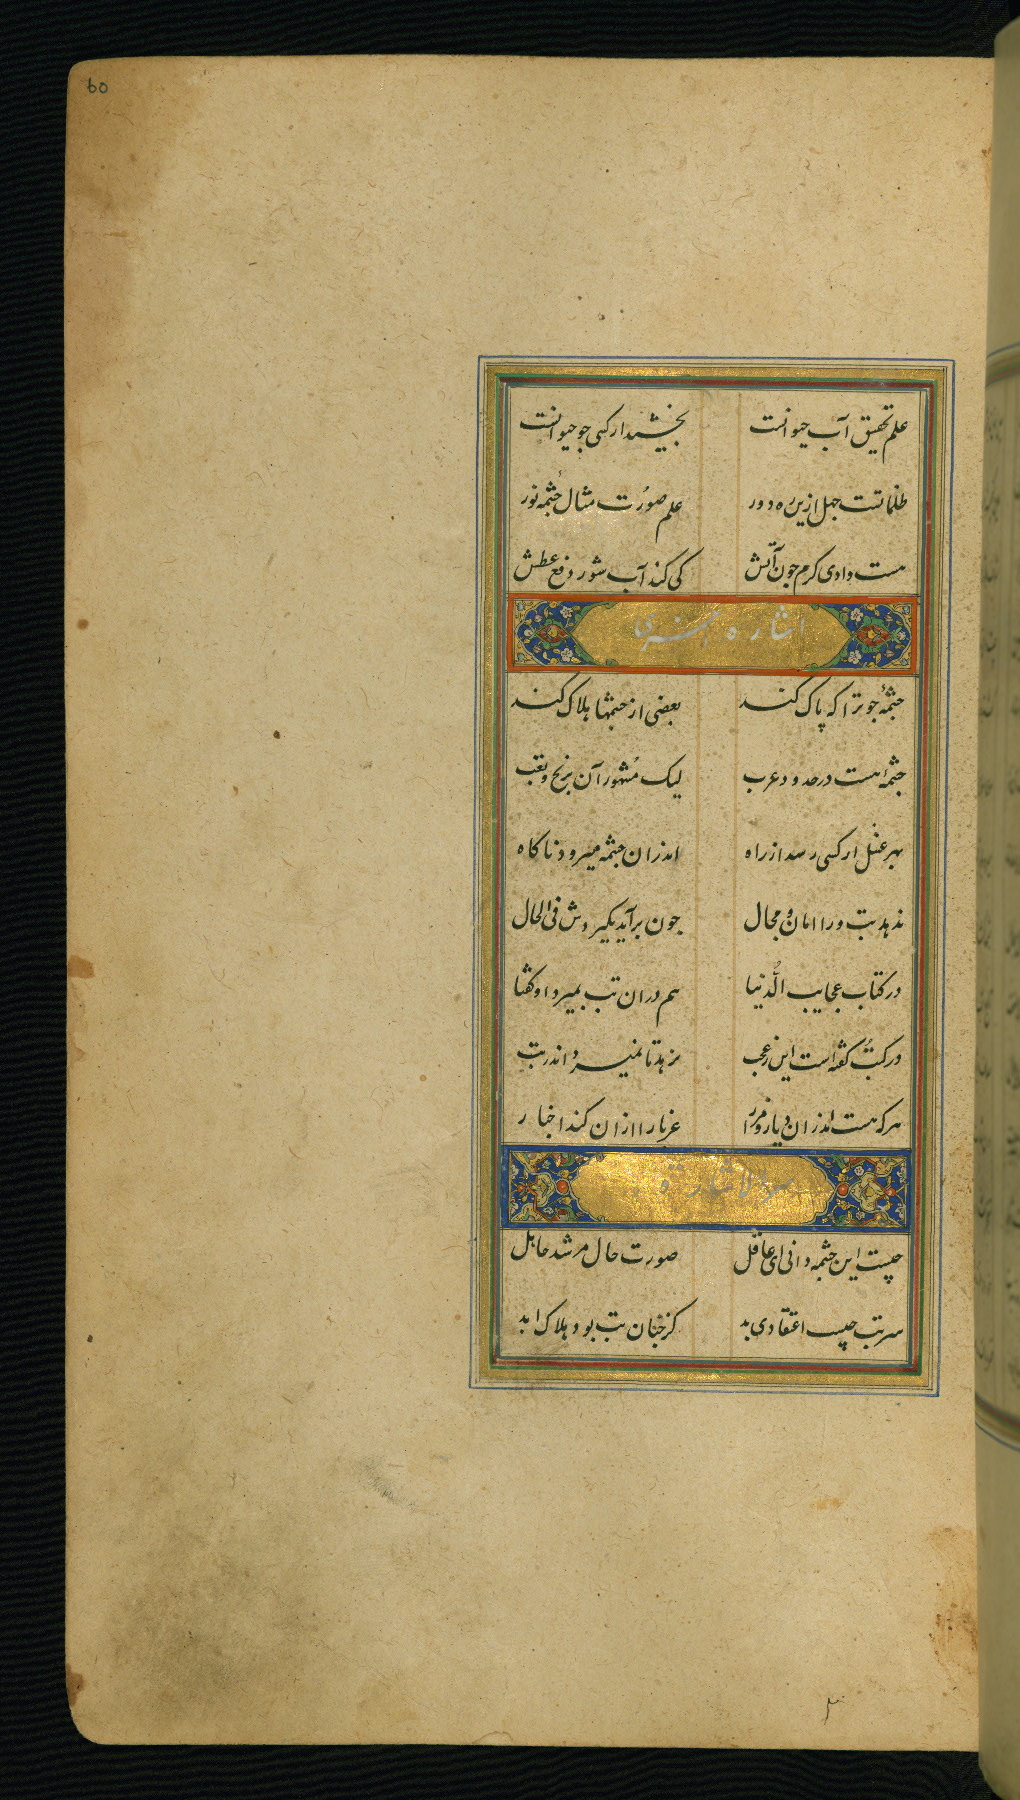 60
علم تحقیق آب حیوانست بخشد ار کسی جو حیوانست
ظلماتست جهل ازین ره دور علم صورت مثال جشمه نور
هست وادی کرم جون آتش کی کند آب شور دفع عطش
اشارة اخری
جشمهٔ جو ترا که پاک کند بعضی از جشمها هلاک کند
جشمهٔ هست در حدود عرب لیک مشهور آن برنج و تعب
بهر غسل ار کسی رسد از راه اندران جشمه میرود ناکاه
ندهد تب ورا امان و مجال جون برآید بکیردش فی الحال
در کتاب عجایب الدنیا هم دران تب بمیرد او کفتا
در کتب کفته است این ز عجب نرهد تا نمیرد اندر تب
هرکه هست اندران دیار و مرا غربا را ازان کند اخبار
سر الاشارة
جیست این جشمه دانی ای عاقل صورت حال مرشد جاهل
سر تب جیست اعتقادی بد کز جنان تب بود هلاک ابد